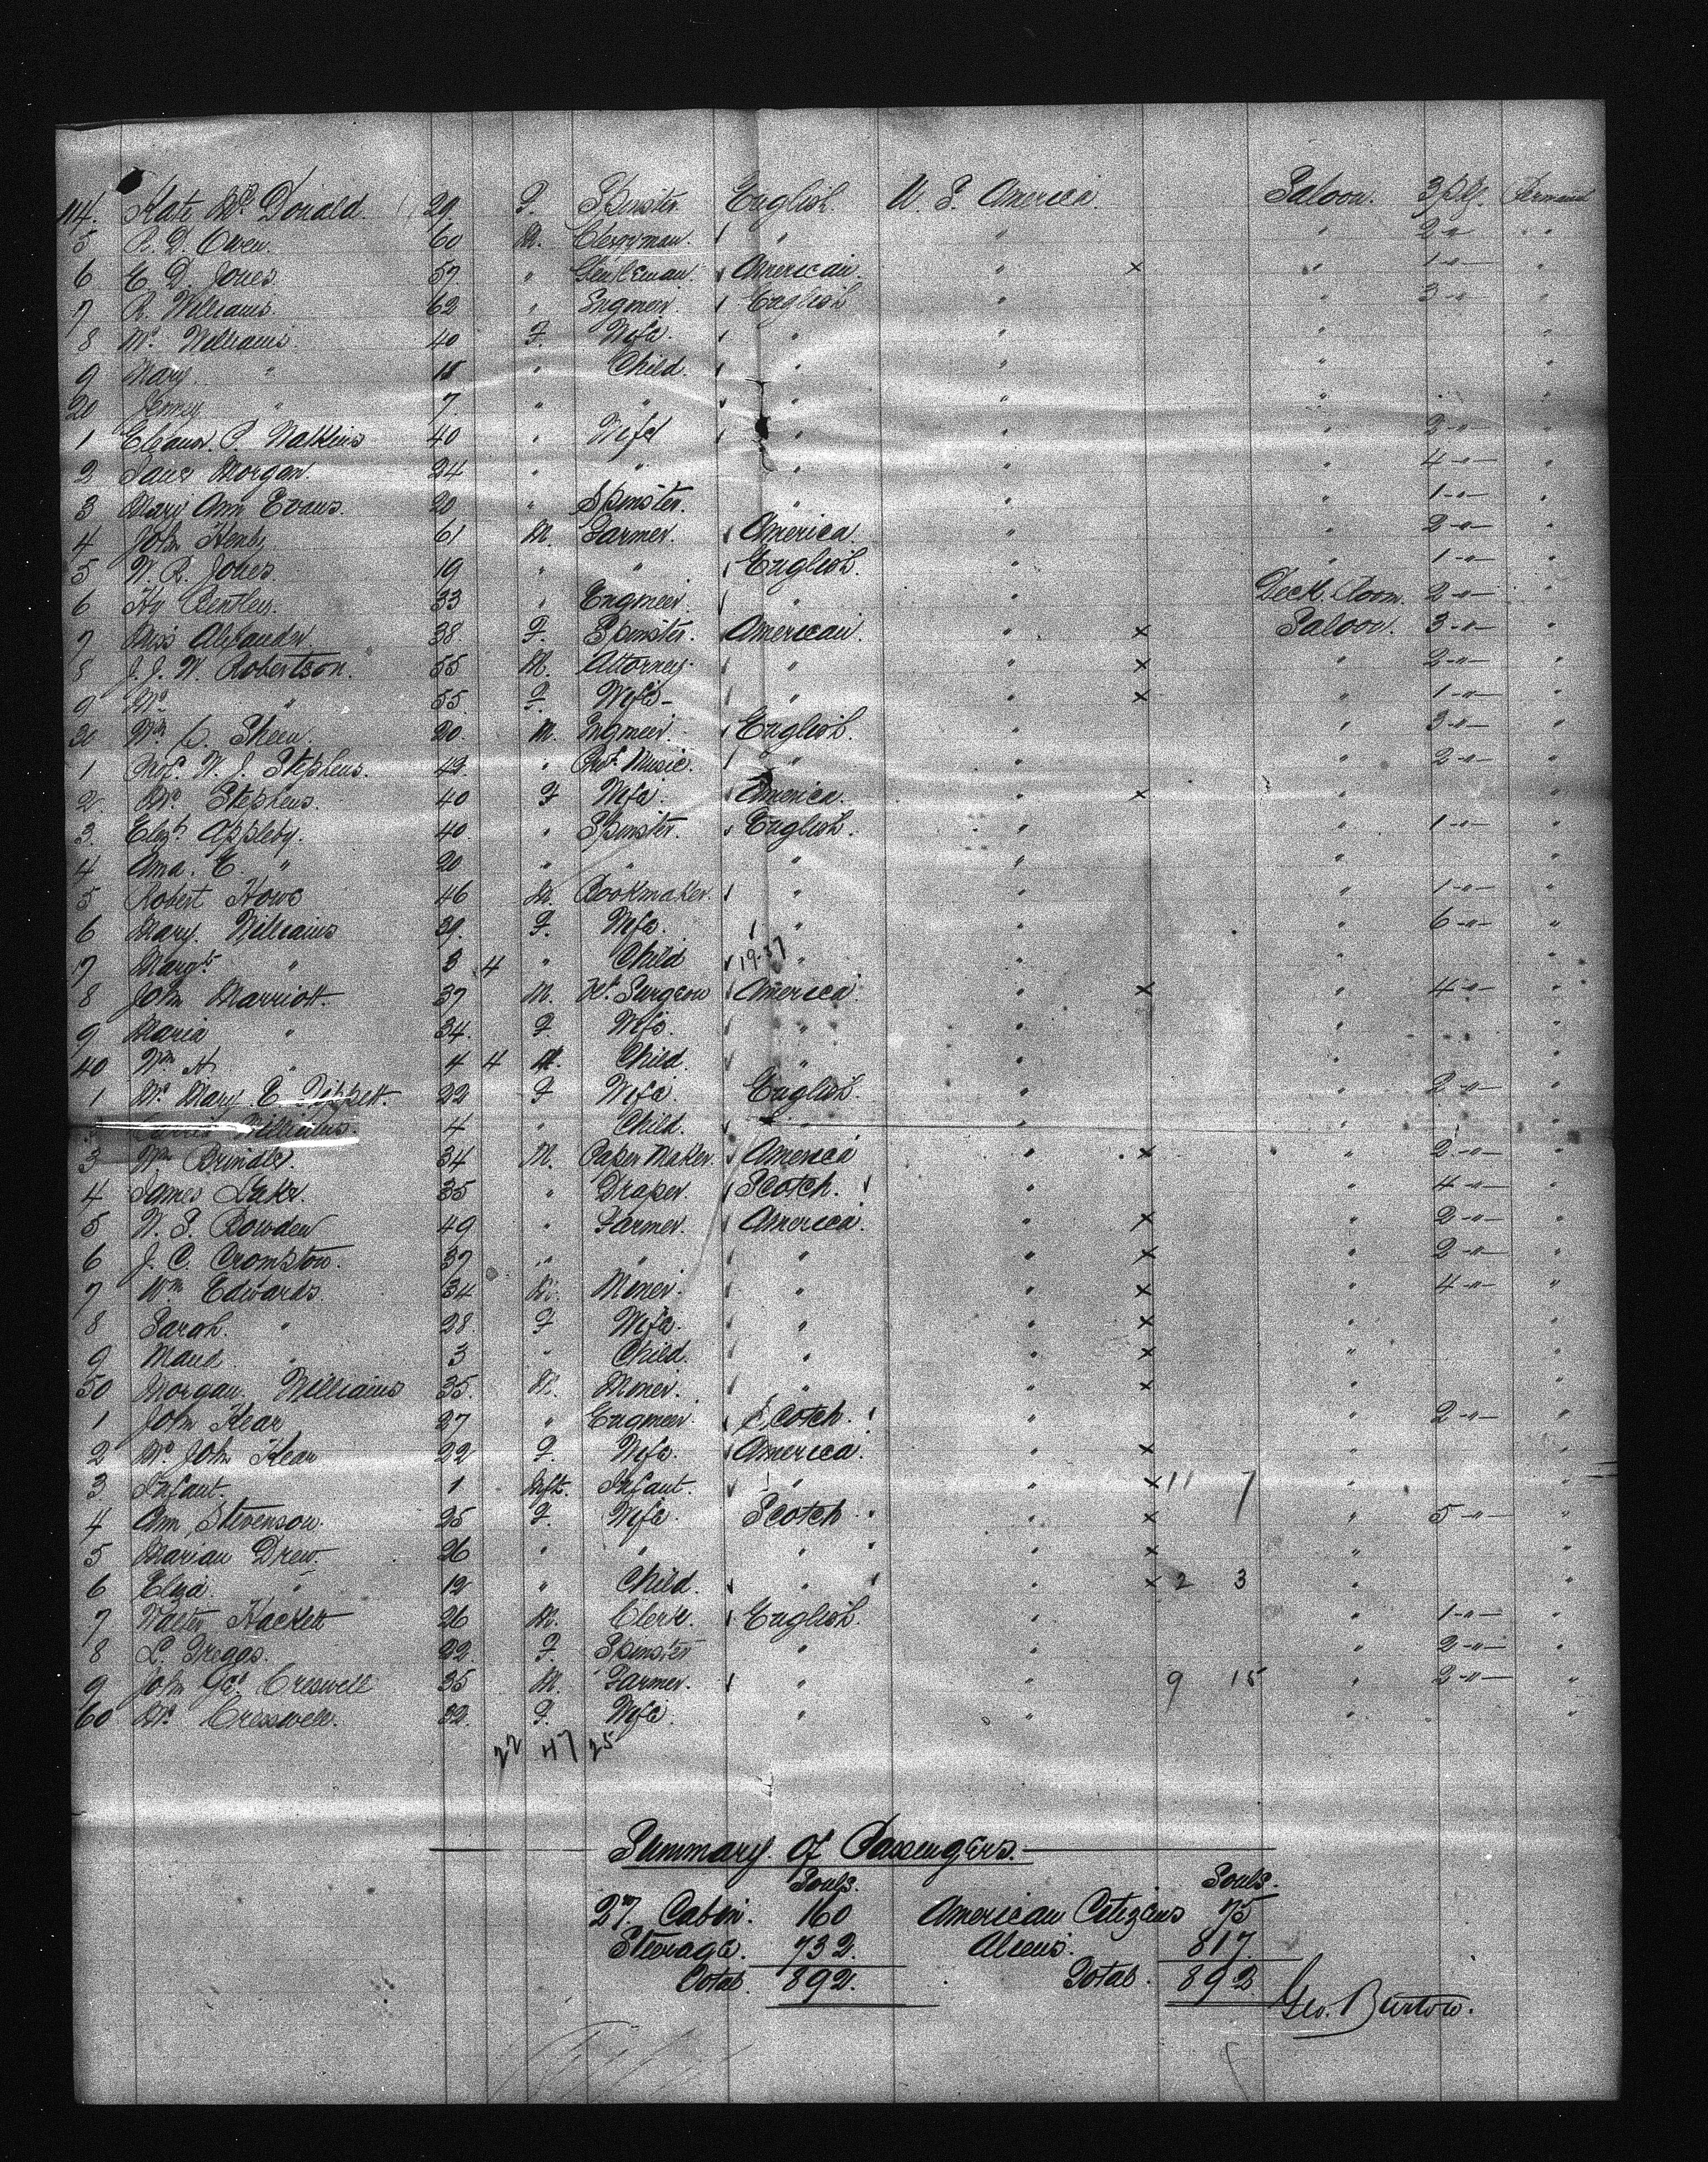 114. Kate McDonald. 29. F. Spinster. English. U. S. America. Saloon. 3 pkg.
5 R. D. Owen. 60 M. Clergiman. " " " 2 " "
6 E. D. Jones 57 " Gentleman. American. " × " 1 -"- "
7 R. Williams. 62 " Engineir. English " " 3 -" "
8 Mrs Williams. 40 F. Wife. " " " "
9 Mary. " 11 " Child. " " " "
20 Jenney " 7 " " " " " "
1 Eleanor P. Watkins 40 " Wife " " " 2 -"- "
2 Morgan. 24 " " " " " 4 -"- "
3 Mary Ann Evans. 20 " Spinster. " " " 1 -"- "
4 John 61 M. Farmer. America. " " 2 -"- "
5 W. R. Jones. 19 " " English. " " 1 -"- "
6 Hy Bentley. 33 " Engineer. " " Deck Room. 2 -"- "
7 Miss Alexander 38. F. Spinster. American. " × Saloon. 3 -"- "
8 J. J. W. Robertson. 55 M. Attorney. " " × " 2 -"- "
9 Mrs " 55. F. Wife - " " × " 1 -"- "
30 Wm Skeen. 20. M. Engineer. English. " " 3 -"- "
1 Prof. W. J. Stephens. 42. " Prof. Music. " " " 2 -"- "
2 Mrs Stephens. 40 F Wife. America. " × " "
3. Elizth Appleby. 40. " Spinster. English. " " 1 -"- "
4 Ama. E. " 20 " " " " " "
5 Robert Howe 46 M. Bookmaker. " " " 1 -"- "
6 Mary. Williams 39. F. Wife. " " " 6 -"- "
7 Margt " 3 4 " Child 19-37 " " " "
8 John Marriott. 37 M. Vt. Surgeon America. " × " 4 -"- "
9 Maria " 34. F. Wife. " " " "
40 Wm H " 4 4 M. Child. " " " "
1 Mrs Mary. E. Tippett. 22 F Wife. English. " " 2 -"- "
Carrie Williams. 4 " Child. "
3 Wm Brindle. 34 M. Paper Maker. America " × " 2 -"- "
4 James Laker. 35 " Draper. Scotch. " " 4 -"- "
5 W. S. Bowden 49 " Farmer. America. " × " 2 -"- "
6 J. C. Crompton. 37 " " " " × " 2 -"- "
7 Wm Edwards. 34 M. Minei. " " × " 4 -"- "
8 Sarah. " 28. F Wife. " " × " "
9 Maud " 3 " Child. " " × " "
50 Morgan. Williams 35. M. Minei. " " × " "
1 John Kear 27 " Engineer. Scotch. " " 2 -"- "
2 Mrs John Kear 22 F. Wife. America. " × " "
3 Infant. 1 Inft. Infant. " " × 11 7 " "
4 Ann Stevenson. 35 F. Wife. Scotch " × " 5 -"- "
5 Marian Drew. 26 " " " " × " "
6 Eliza. " 12 " Child. " " × 2 3 " "
7 Walter Hackett 26 M. Clerk. English. " " 1 -"- "
8 L. Greggs. 22. F. Spinster " " " 2 -"- "
9 John Jas. Creswell 35 M. Farmer. " " 9 15 " 2 -"- "
60 Mrs Cresswell. 32. F. Wife. " " " "
22 47 25
Summary of Passengers.
Souls. Souls.
27. Cabin. 160 American Citizens 75
Steerage. 732. Aliens. 817.
Total. 892. Total. 892
Geo. Burton.